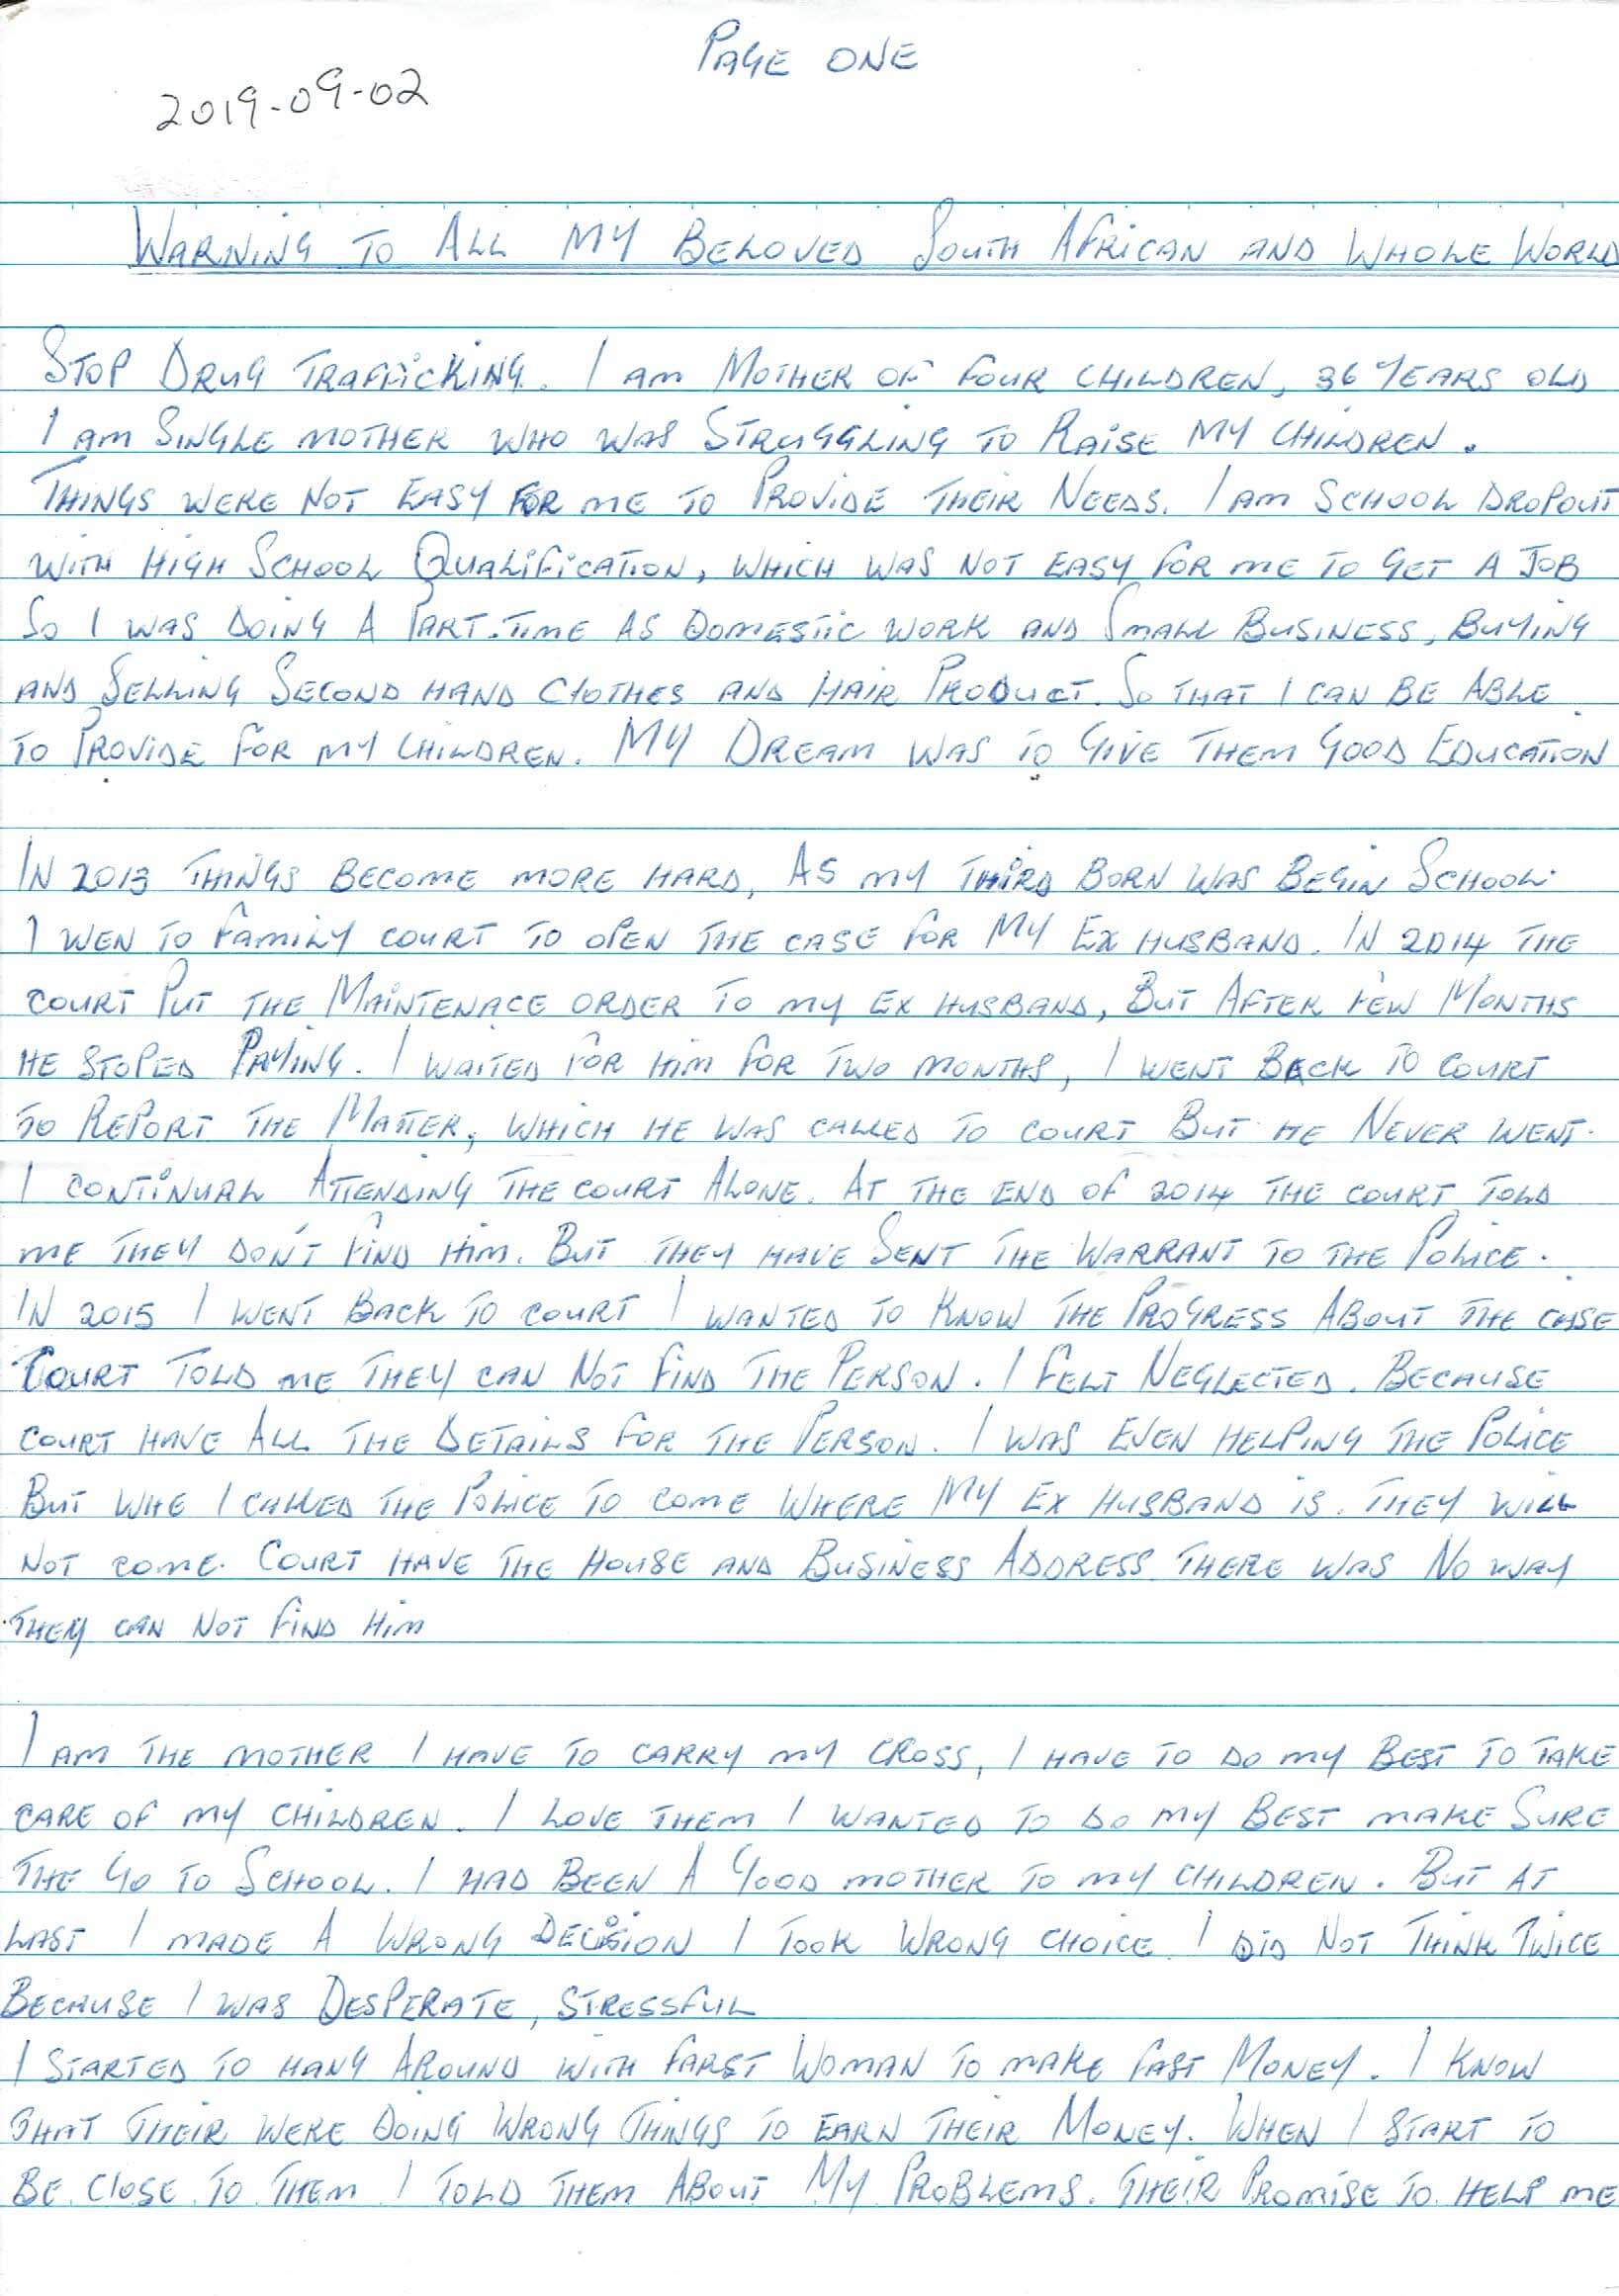 PAGE ONE
2019-09-02
WARNING TO ALL MY BELOVED SOUTH AFRICAN AND WHOLE WORLD
STOP DRUG TRAFFICKING. I AM MOTHER OF FOUR CHILDREN, 36 YEARS OLD
I AM SINGLE MOTHER WHO WAS STRUGGLING TO RAISE MY CHILDREN.
THINGS WERE NOT EASY FOR ME TO PROVIDE THEIR NEEDS. I AM SCHOOL DROPOUT
WITH HIGH SCHOOL QUALIFICATION, WHICH WAS NOT EASY FOR ME TO GET A JOB
SO I WAS DOING A PART-TIME AS DOMESTIC WORK AND SMALL BUSINESS, BUYING
AND SELLING SECOND HAND CLOTHES AND HAIR PRODUCT. SO THAT I CAN BE ABLE
TO PROVIDE FOR MY CHILDREN. MY DREAM WAS TO GIVE THEM GOOD EDUCATION
IN 2013 THINGS BECOME MORE HARD, AS MY THIRD BORN WAS BEGIN SCHOOL.
I WEN TO FAMILY COURT TO OPEN THE CASE FOR MY EX HUSBAND. IN 2014 THE
COURT PUT THE MAINTENACE ORDER TO MY EX HUSBAND, BUT AFTER FEW MONTHS
HE STOPED PAYING. I WAITED FOR HIM FOR TWO MONTHS, I WENT BACK TO COURT
TO REPORT THE MATTER, WHICH HE WAS CALLED TO COURT BUT HE NEVER WENT.
I CONTINUAL ATTENDING THE COURT ALONE. AT THE END OF 2014 THE COURT TOLD
ME THEY DON'T FIND HIM. BUT THEY HAVE SENT THE WARRANT TO THE POLICE.
IN 2015 I WENT BACK TO COURT I WANTED TO KNOW THE PROGRESS ABOUT THE CASE
COURT TOLD ME THEY CAN NOT FIND THE PERSON. I FELT NEGLECTED. BECAUSE
COURT HAVE ALL THE DETAILS FOR THE PERSON. I WAS EVEN HELPING THE POLICE
BUT WHE I CALLED THE POLICE TO COME WHERE MY EX HUSBAND IS. THEY WILL
NOT COME. COURT HAVE THE HOUSE AND BUSINESS ADDRESS THERE WAS NO WAY
THEY CAN NOT FIND HIM
I AM THE MOTHER I HAVE TO CARRY MY CROSS, I HAVE TO DO MY BEST TO TAKE
CARE OF MY CHILDREN. I LOVE THEM I WANTED TO DO MY BEST MAKE SURE
THE GO TO SCHOOL. I HAD BEEN A GOOD MOTHER TO MY CHILDREN. BUT AT
LAST I MADE A WRONG DECISION I TOOK WRONG CHOICE I DID NOT THINK TWICE
BECAUSE I WAS DESPERATE, STRESSFUL
I STARTED TO HANG AROUND WITH FARST WOMAN TO MAKE FAST MONEY. I KNOW
THAT THEIR WERE DOING WRONG THINGS TO EARN THEIR MONEY. WHEN I START TO
BE CLOSE TO THEM I TOLD THEM ABOUT MY PROBLEMS. THEIR PROMISE TO HELP ME